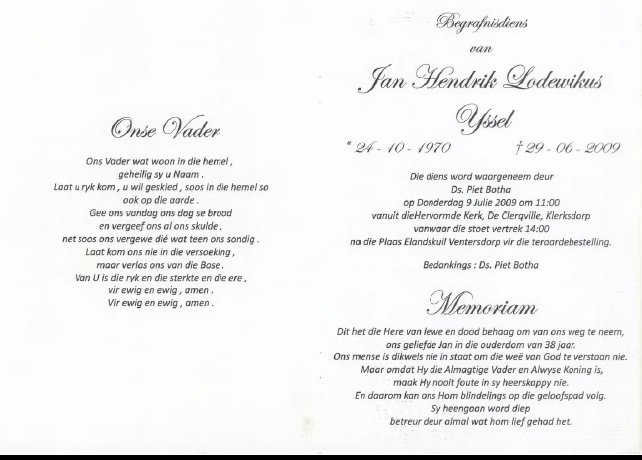 Onse Vader
Ons Vader wat woon in die hemel ,
geheilig sy u Naam .
Laat u ryk kom , u wil geskied , soos in die hemel so
ook op die aarde .
Gee ons vandag ons dag se brood
en vergeef ons al ons skulde ,
net soos ons vergewe dié wat teen ons sondig .
Laat kom ons nie in die versoeking ,
maar verlos ons van die Bose .
Van U is die ryk en die sterkte en die ere ,
vir ewig en ewig , amen .
Vir ewig en ewig , amen .
Begrafnisdiens
van
Jan Hendrik Lodewikus
Yssel
* 24 - 10 - 1970 † 29 - 06 - 2009
Die diens word waargeneem deur
Ds. Piet Botha
op Donderdag 9 Julie 2009 om 11:00
vanuit dieHervormde Kerk, De Clerqville, Klerksdorp
vanwaar die stoet vertrek 14:00
na die Plaas Elandskuil Ventersdorp vir die teraardebestelling.
Bedankings : Ds. Piet Botha
Memoriam
Dit het die Here van lewe en dood behaag om van ons weg te neem,
ons geliefde Jan in die ouderdom van 38 jaar.
Ons mense is dikwels nie in staat om die weë van God te verstaan nie.
Maar omdat Hy die Almagtige Vader en Alwyse Koning is,
maak Hy nooit foute in sy heerskappy nie.
En daarom kan ons Hom blindelings op die geloofspad volg.
Sy heengaan word diep
betreur deur almal wat hom lief gehad het.